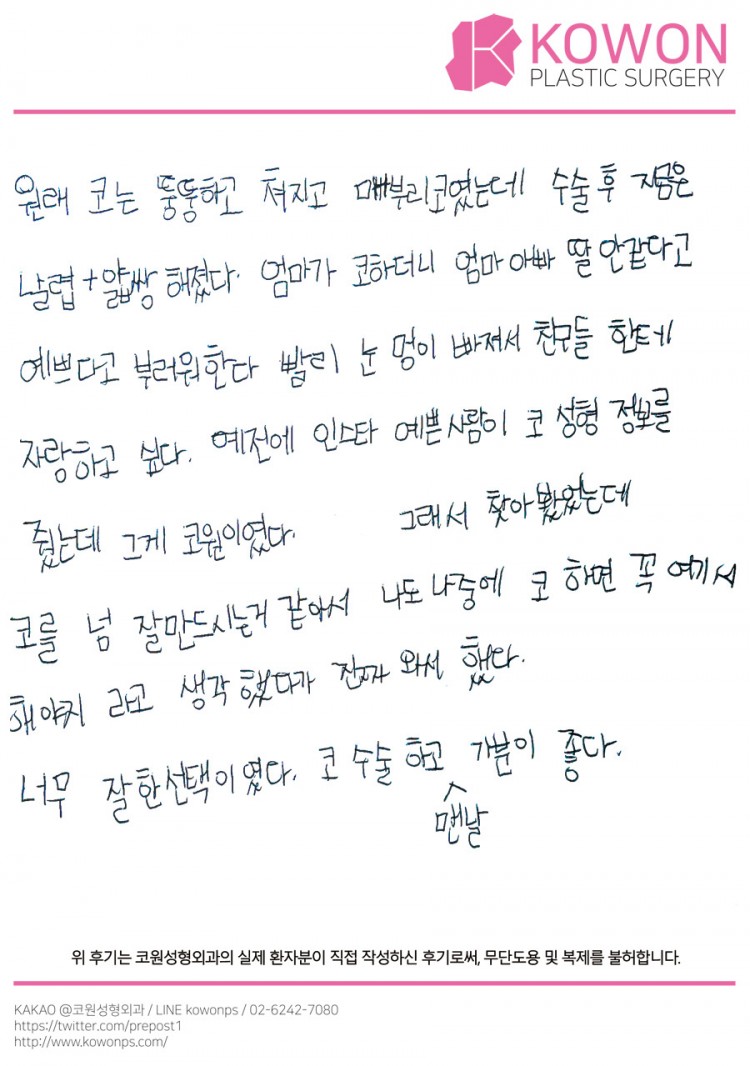 KOWON
PLASTIC SURGERY
원래 코는 뚱뚱하고 쳐지고 매부리코였는데 수술 후 지금은
날렵+얇쌍 해졌다. 엄마가 코하더니 엄마 아빠 딸 안같다고
예쁘다고 부러워한다 빨리 눈 멍이 빠져서 친구들 한테
자랑하고 싶다. 예전에 인스타 예쁜사람이 코 성형 정보를
줬는데 그게 코원이였다. 그래서 찾아봤었는데
코를 넘 잘만드시는거 같아서 나도 나중에 코 하면 꼭 여기서
해야지 라고 생각했다가 진짜 와서 했다.
너무 잘한선택이였다. 코 수술하고 기분이 좋다.
맨날
위 후기는 코원성형외과의 실제 환자분이 직접 작성하신 후기로써, 무단도용 및 복제를 불허합니다.
KAKAO @코원성형외과 / LINE kowonps / 02-6242-7080
https://twitter.com/prepost1
http://www.kowonps.com/